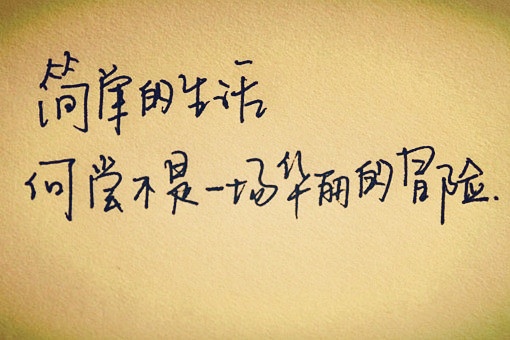 简单的生活
何尝不是一场华丽的冒险.